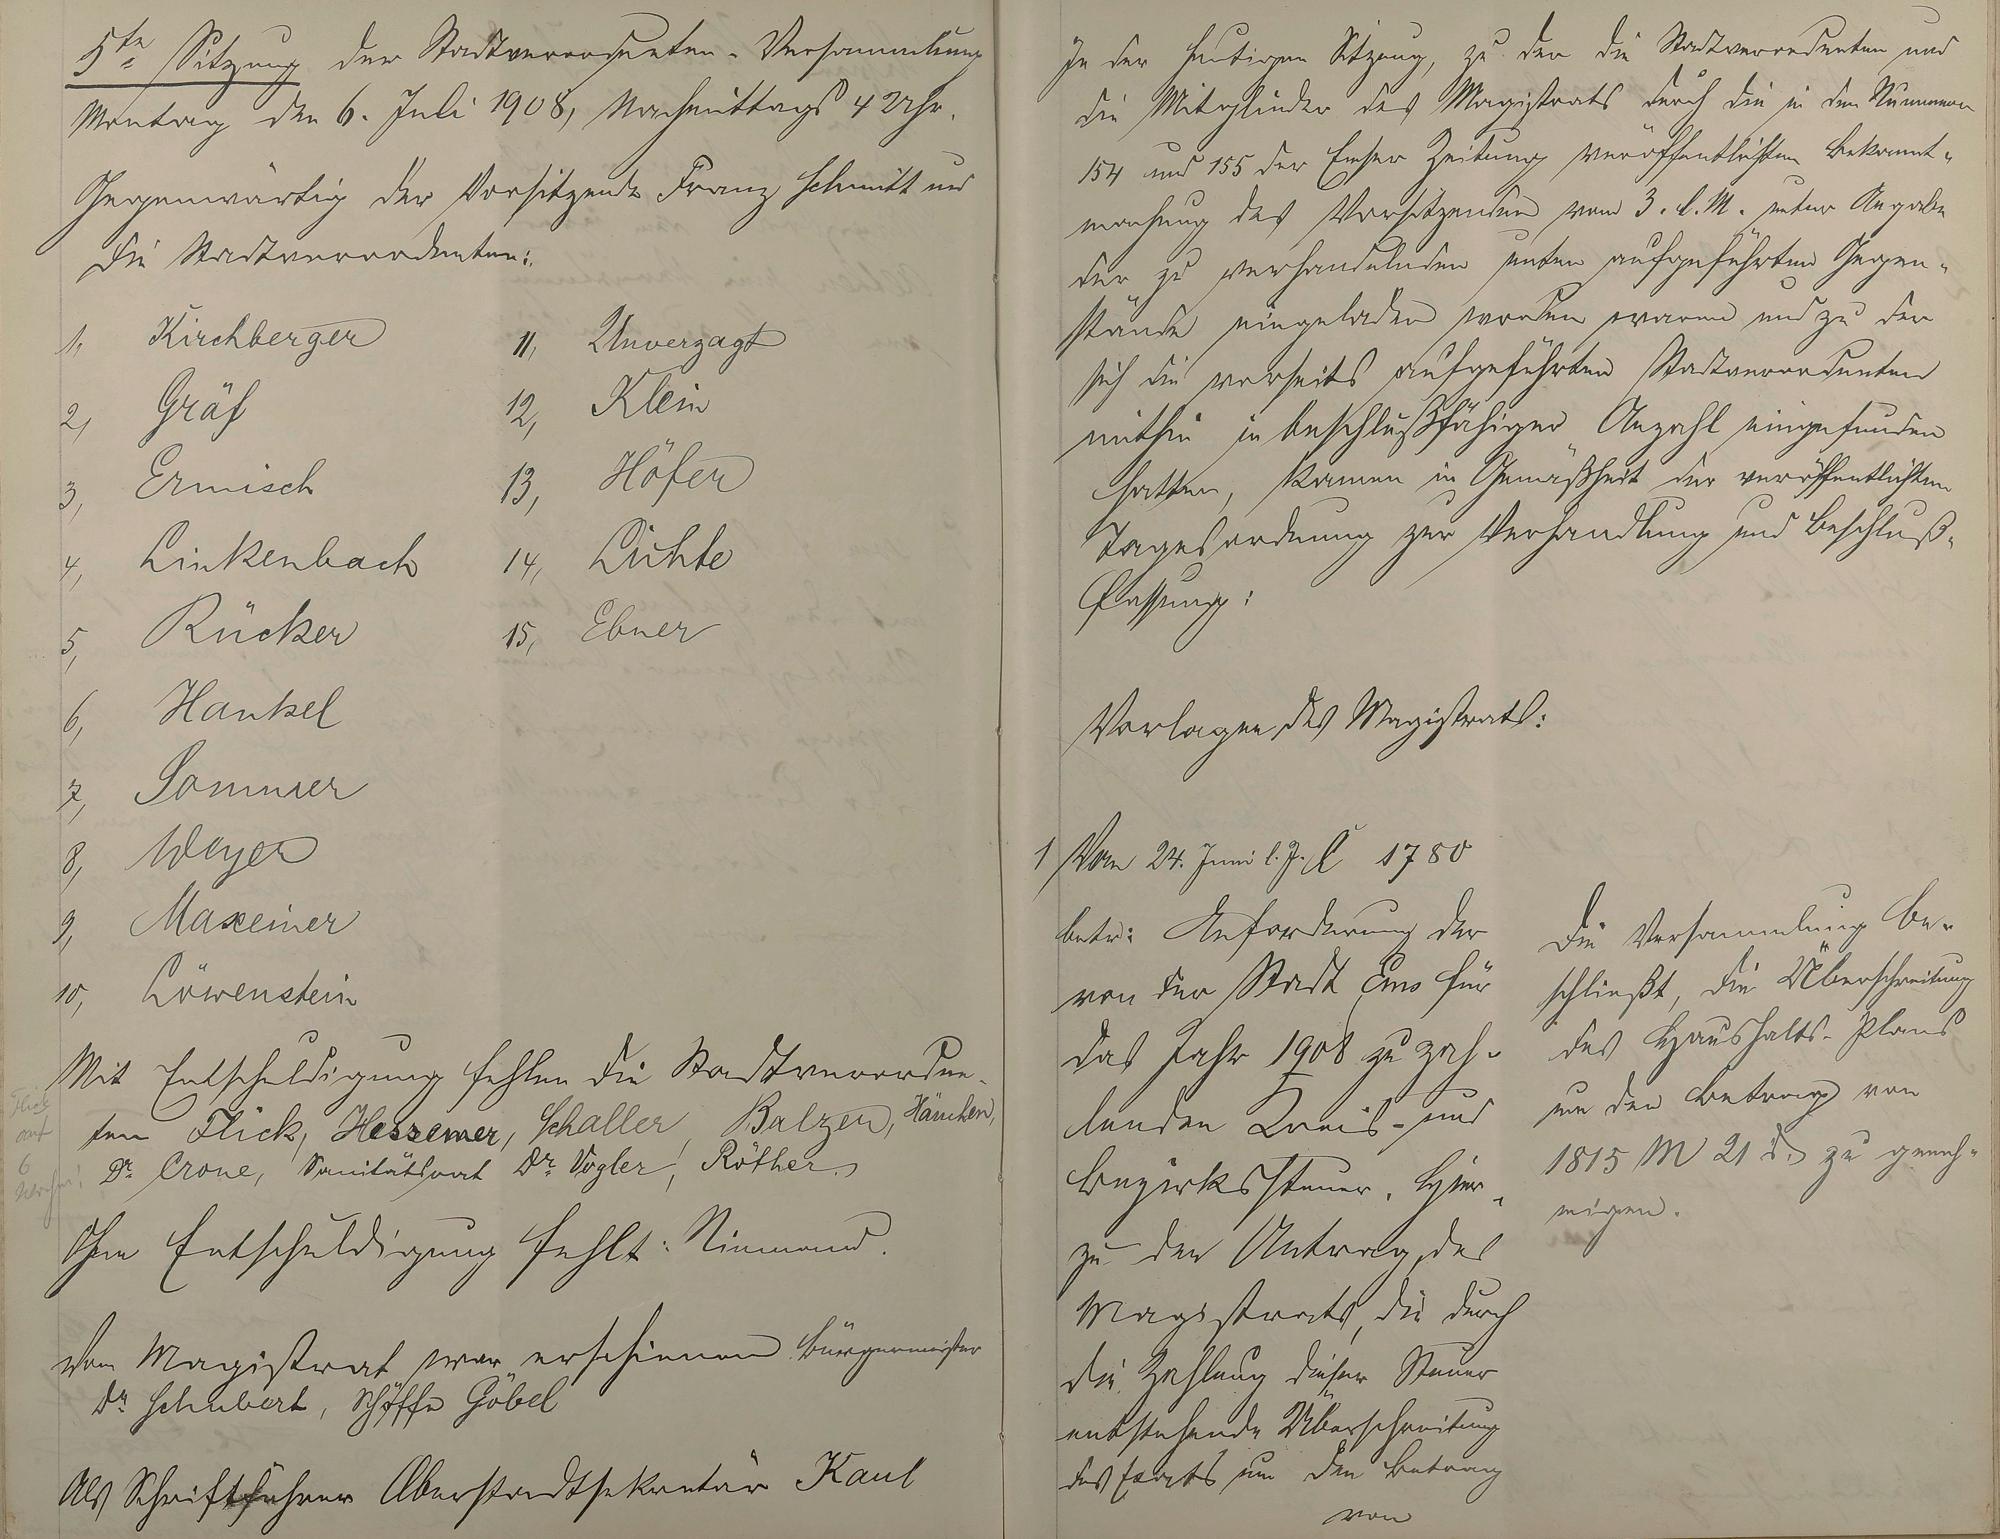 5te Sitzung der Stadtverordneten-Versammlung
Montag den 6. Juli 1908, Nachmittags 4 Uhr.
Gegenwärtig der Vorsitzende Franz Schmitt und
die Stadtverordneten:
1, Kirchberger
2, Gräf
3, Ermisch
4, Linkenbach
5, Rücker
6, Hankel
7, Sommer
8, Weyer
9, Maxeiner
10, Löwenstein
11, Unverzagt
12, Klein
13, Höfer
14, Lichte
15, Ebner
Mit Entschuldigung fehlen die Stadtverordne-
ten Flick, Hessemer, Schaller, Balzer, Hänchen,
Dr. Crone, Sanitätsrat Dr. Vogler, Röther.
Flick
auf
6
Wochen!
Ohne Entschuldigung fehlt: Niemand.
Vom Magistrat war erschienen Bürgermeister
Dr. Schubert, Schöffe Göbel
Als Schriftführer Oberstadtsekretär Kaul
In der heutigen Sitzung, zu der die Stadtverordneten und
die Mitglieder des Magistrats durch die in den Nummern
154 und 155 der Emser Zeitung veröffentlichten Bekannt-
machung des Vorsitzenden vom 3. l. M. unter Angabe
der zu verhandelnden unten aufgeführten Gegen-
stände eingeladen worden waren und zu der
sich die vorseits aufgeführten Stadtverordneten
mithin in beschlußfähiger Anzahl eingefunden
hatten, kamen in Gemäßheit der veröffentlichten
Tagesordnung zur Verhandlung und Beschluß-
fassung:
Vorlagen des Magistrats:
1 Vom 24. Juni l. J. 1780
betr: Anforderung der
von der Stadt Ems für
das Jahr 1908 zu zah-
lenden Kreis- und
Bezirkssteuer. Hier-
zu den Antrag des
Magistrats, die durch
die Zahlung dieser Steuer
entstehende Überschreitung
des Etats um den Betrag
von
Die Versammlung be-
schließt, die Überschreitung
des Haushalts-Plans
um den Betrag von
1815 M 21 d. zu geneh-
migen.